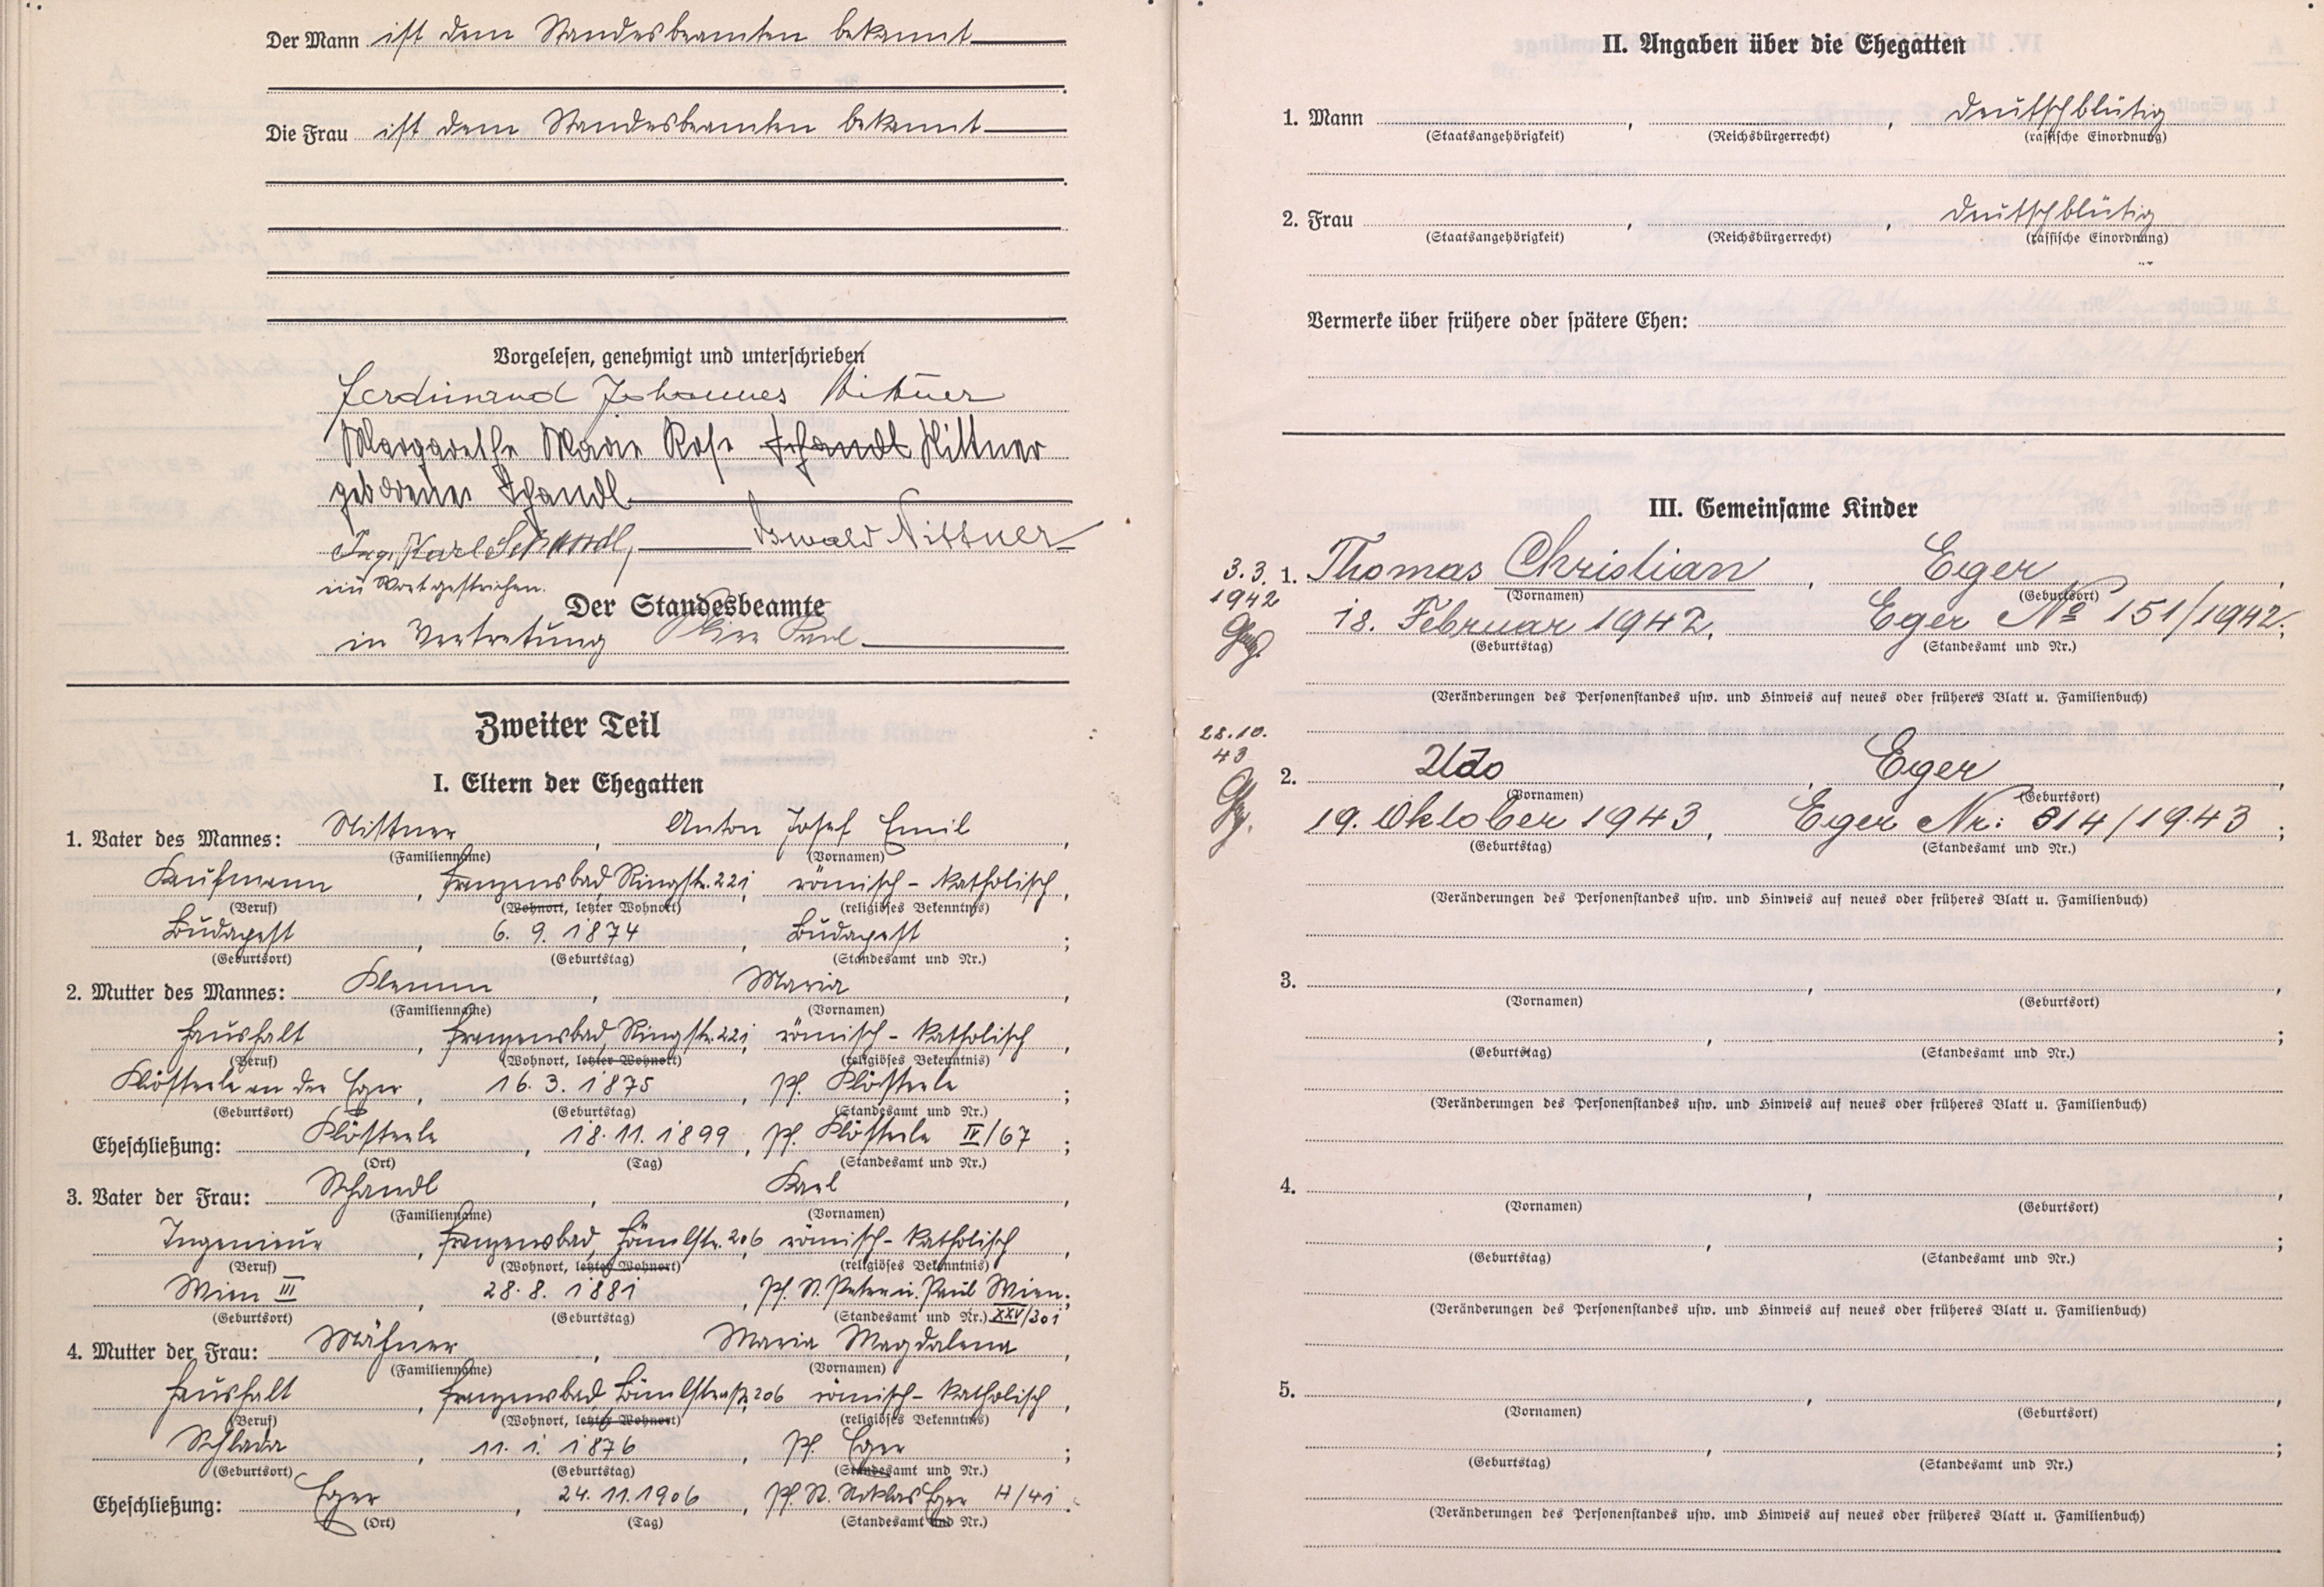 Der Mann ist dem Standesbeamten bekannt
Die Frau ist dem Standesbeamten bekannt
Vorgelesen, genehmigt und unterschrieben
Ferdinand Johannes Nittner
Margarethe Marie Rosa Schandl Nittner
geborene Schandl
Ing. Karl Schandl, Oswald Nittner
ein Wort gestrichen.
Der Standesbeamte
in Vertretung
Zweiter Teil
I. Eltern der Ehegatten
1. Vater des Mannes: Nittner, Anton Josef Emil,
(Familienname) (Vornamen)
Kaufmann, Franzensbad, Ringstr. 221, römisch-katholisch,
(Beruf) (Wohnort, letzter Wohnort) (religiöses Bekenntnis)
Budapest, 6. 9. 1874, Budapest;
(Geburtsort) (Geburtstag) (Standesamt und Nr.)
2. Mutter des Mannes: Klemm, Maria,
(Familienname) (Vornamen)
Haushalt, Franzensbad, Ringstr. 221, römisch-katholisch,
(Beruf) (Wohnort, letzter Wohnort) (religiöses Bekenntnis)
Klösterle an der Eger, 16. 3. 1875, Pf. Klösterle;
(Geburtsort) (Geburtstag) (Standesamt und Nr.)
Eheschließung: Klösterle, 18. 11. 1899, Pf. Klösterle IV/67;
(Ort) (Tag) (Standesamt und Nr.)
3. Vater der Frau: Schandl, Karl,
(Familienname) (Vornamen)
Ingenieur, Franzensbad, 206 römisch-katholisch,
(Beruf) (Wohnort, letzter Wohnort) (religiöses Bekenntnis)
Wien III, 28. 8. 1881, Pf. St. Peter u. Paul Wien;
(Geburtsort) (Geburtstag) (Standesamt und Nr.) XXV/301
4. Mutter der Frau: , Maria Magdalena,
(Familienname) (Vornamen)
Haushalt, Franzensbad, 206 römisch-katholisch,
(Beruf) (Wohnort, letzter Wohnort) (religiöses Bekenntnis)
Schlada, 11. 1. 1876, Pf. Eger;
(Geburtsort) (Geburtstag) (Standesamt und Nr.)
Eheschließung: Eger, 24. 11. 1906, Pf. St. Niklas Eger /41.
(Ort) (Tag) (Standesamt und Nr.)
II. Angaben über die Ehegatten
1. Mann , , deutschblütig
(Staatsangehörigkeit) (Reichsbürgerrecht) (rassische Einordnung)
2. Frau , , deutschblütig
(Staatsangehörigkeit) (Reichsbürgerrecht) (rassische Einordnung)
Vermerke über frühere oder spätere Ehen:
III. Gemeinsame Kinder
3.3. 1. Thomas Christian, Eger,
1942 (Vornamen) (Geburtsort)
18. Februar 1942, Eger No 151/1942;
(Geburtstag) (Standesamt und Nr.)
(Veränderungen des Personenstandes usw. und Hinweis auf neues oder früheres Blatt u. Familienbuch)
28.10.
43
2. Udo, Eger,
(Vornamen) (Geburtsort)
19. Oktober 1943, Eger Nr: 814/1943;
(Geburtstag) (Standesamt und Nr.)
(Veränderungen des Personenstandes usw. und Hinweis auf neues oder früheres Blatt u. Familienbuch)
3. , ,
(Vornamen) (Geburtsort)
, ;
(Geburtstag) (Standesamt und Nr.)
(Veränderungen des Personenstandes usw. und Hinweis auf neues oder früheres Blatt u. Familienbuch)
4. , ,
(Vornamen) (Geburtsort)
, ;
(Geburtstag) (Standesamt und Nr.)
(Veränderungen des Personenstandes usw. und Hinweis auf neues oder früheres Blatt u. Familienbuch)
5. , ,
(Vornamen) (Geburtsort)
, ;
(Geburtstag) (Standesamt und Nr.)
(Veränderungen des Personenstandes usw. und Hinweis auf neues oder früheres Blatt u. Familienbuch)